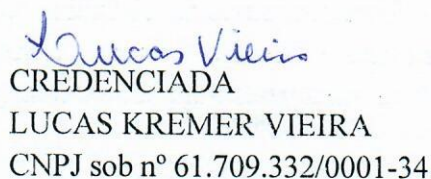 Lucas Vieira
CREDENCIADA
LUCAS KREMER VIEIRA
CNPJ sob nº 61.709.332/0001-34